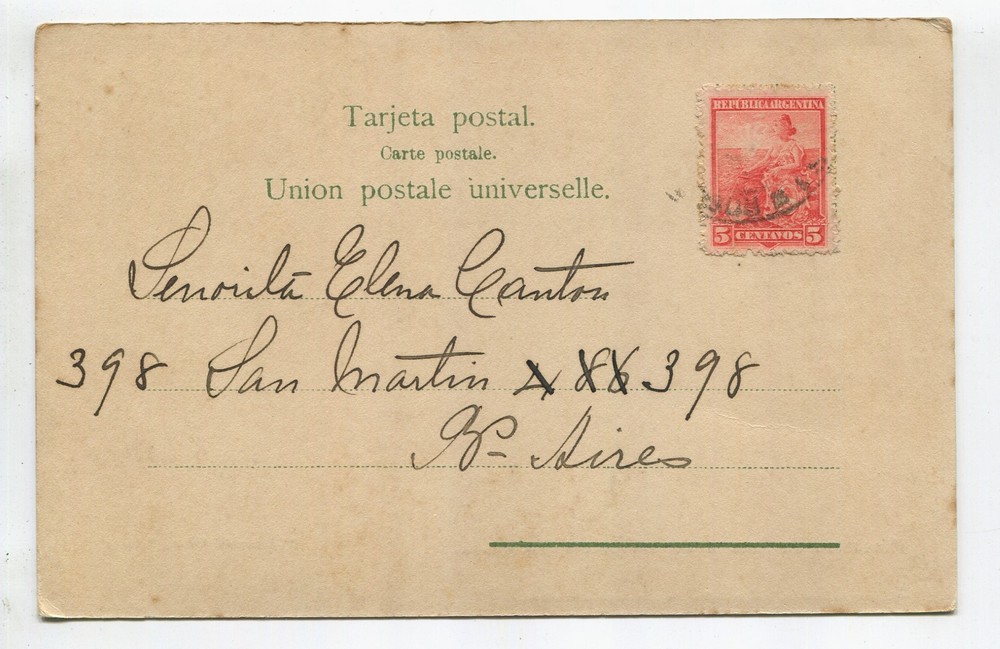 Tarjeta postal.
Carte postale.
Union postale universelle.
REPÚBLICA ARGENTINA
5 CENTAVOS 5
Señorita Elena Canton
398 San Martin 486 398
Bs Aires